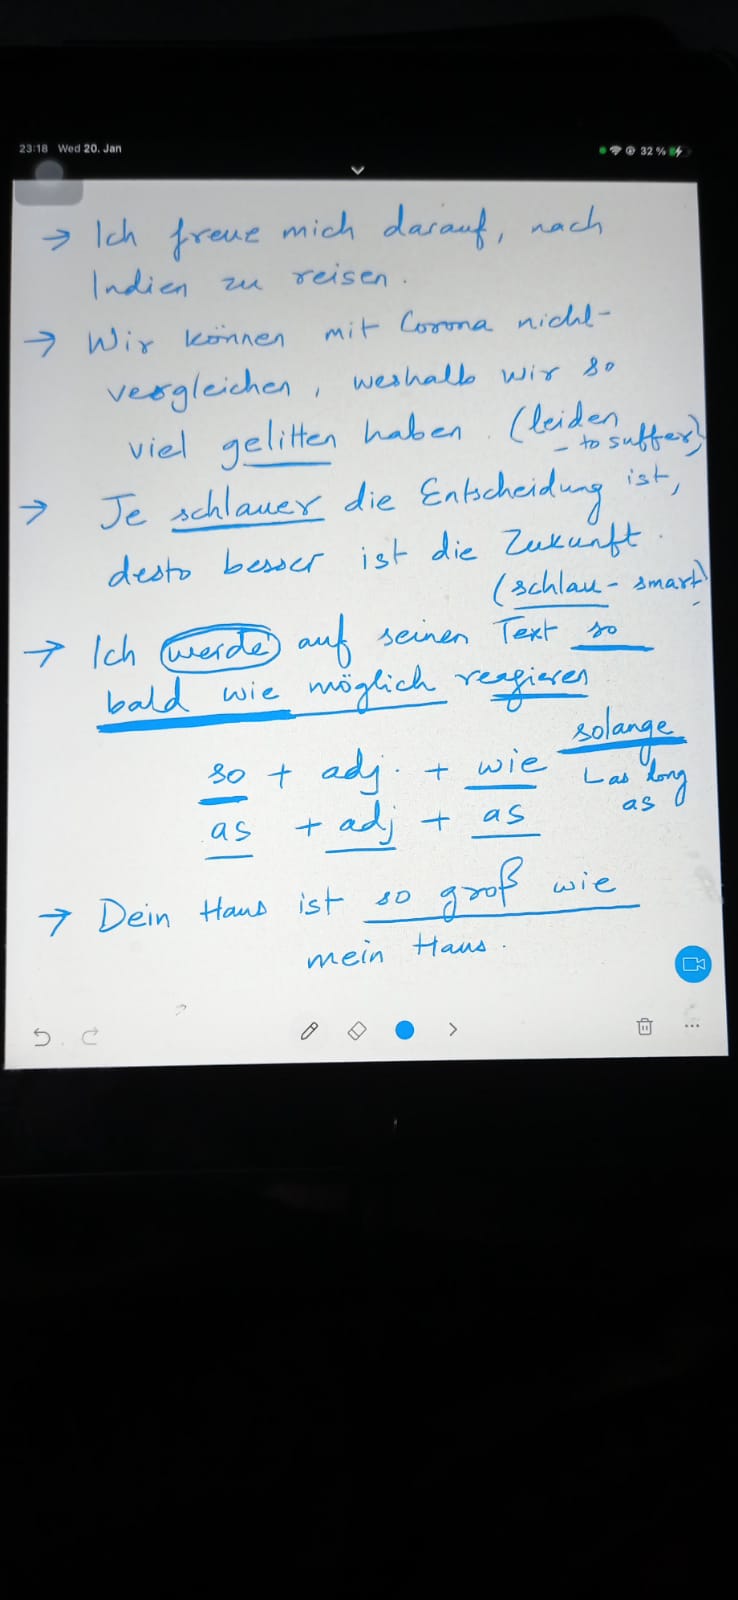 23:18 Wed 20. Jan
32 %
→ Ich freue mich darauf, nach
Indien zu reisen.
→ Wir können mit Corona nicht
vergleichen, weshalb wir so
viel gelitten haben. (leiden
- to suffer)
→ Je schlauer die Entscheidung ist,
desto besser ist die Zukunft.
(schlau - smart)
→ Ich werde auf seinen Text so
bald wie möglich reagieren
so + adj. + wie
solange
as long
as
as + adj + as
→ Dein Haus ist so groß wie
mein Haus.